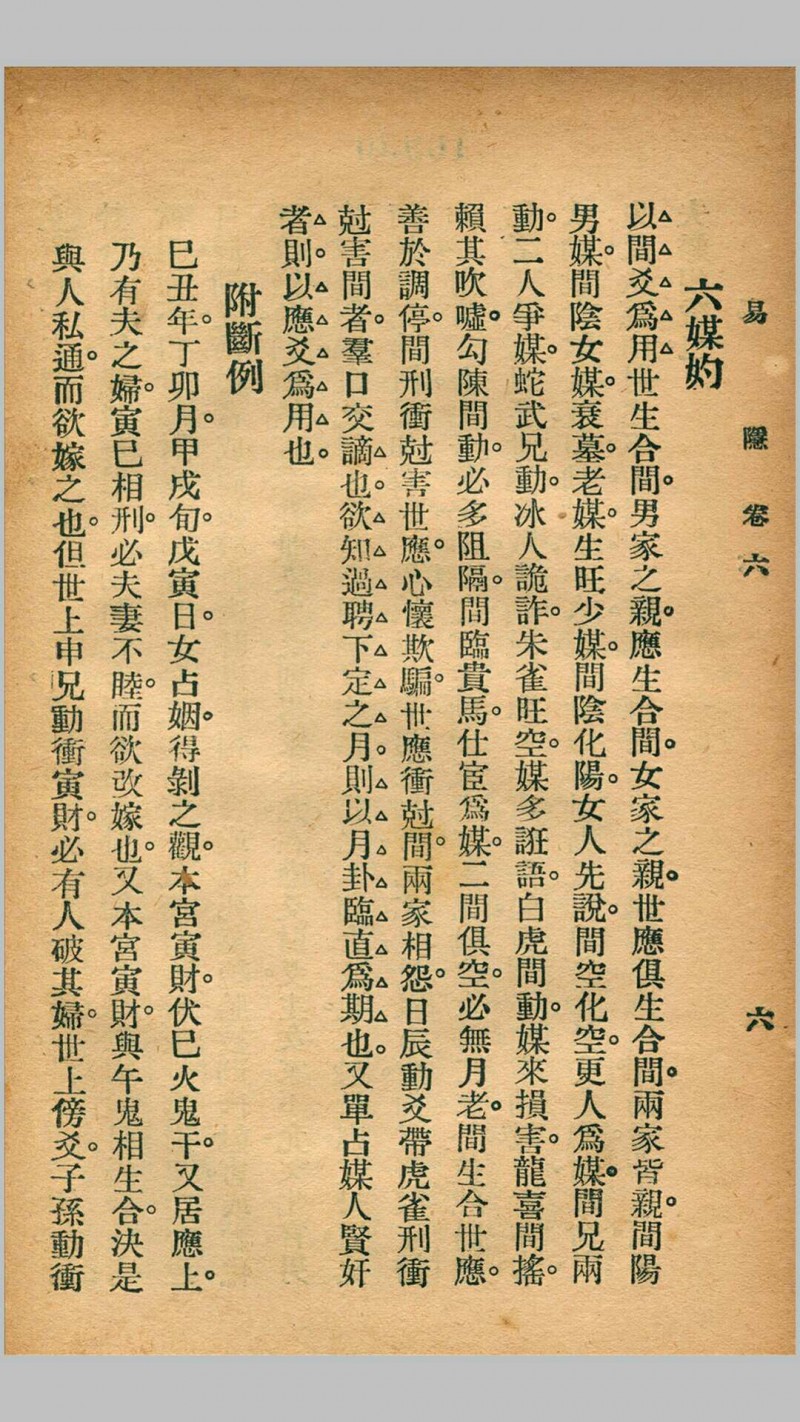 易隱卷六 六
六媒妁
以間爻爲用世生合間。男家之親。應生合間。女家之親。世應俱生合間。兩家皆親。間陽
男媒。間陰女媒。衰墓。老媒。生旺少媒。間陰化陽。女人先說。間空化空。更人爲媒。間兄兩
動。二人爭媒。蛇武兄動。冰人詭詐。朱雀旺空。媒多誑語。白虎間動。媒來損害。龍喜間搖。
賴其吹噓。勾陳間動。必多阻隔。間臨貴馬。仕宦爲媒。二間俱空。必無月老。間生合世應。
善於調停。間刑衝尅害世應。心懷欺騙。世應衝尅間。兩家相怨。日辰動爻帶虎雀刑衝
尅害間者。羣口交謫也。欲知過聘下定之月。則以月卦臨直爲期也。又單占媒人賢奸
者。則以應爻爲用也。
附斷例
巳丑年。丁卯月。甲戌旬。戊寅日。女占姻。得剝之觀。本宮寅財。伏巳火鬼干。又居應上。
乃有夫之婦。寅巳相刑。必夫妻不睦。而欲改嫁也。又本宮寅財。與午鬼相生合。決是
與人私通。而欲嫁之也。但世上申兄動衝寅財。必有人破其婦。世上傍爻。子孫動衝